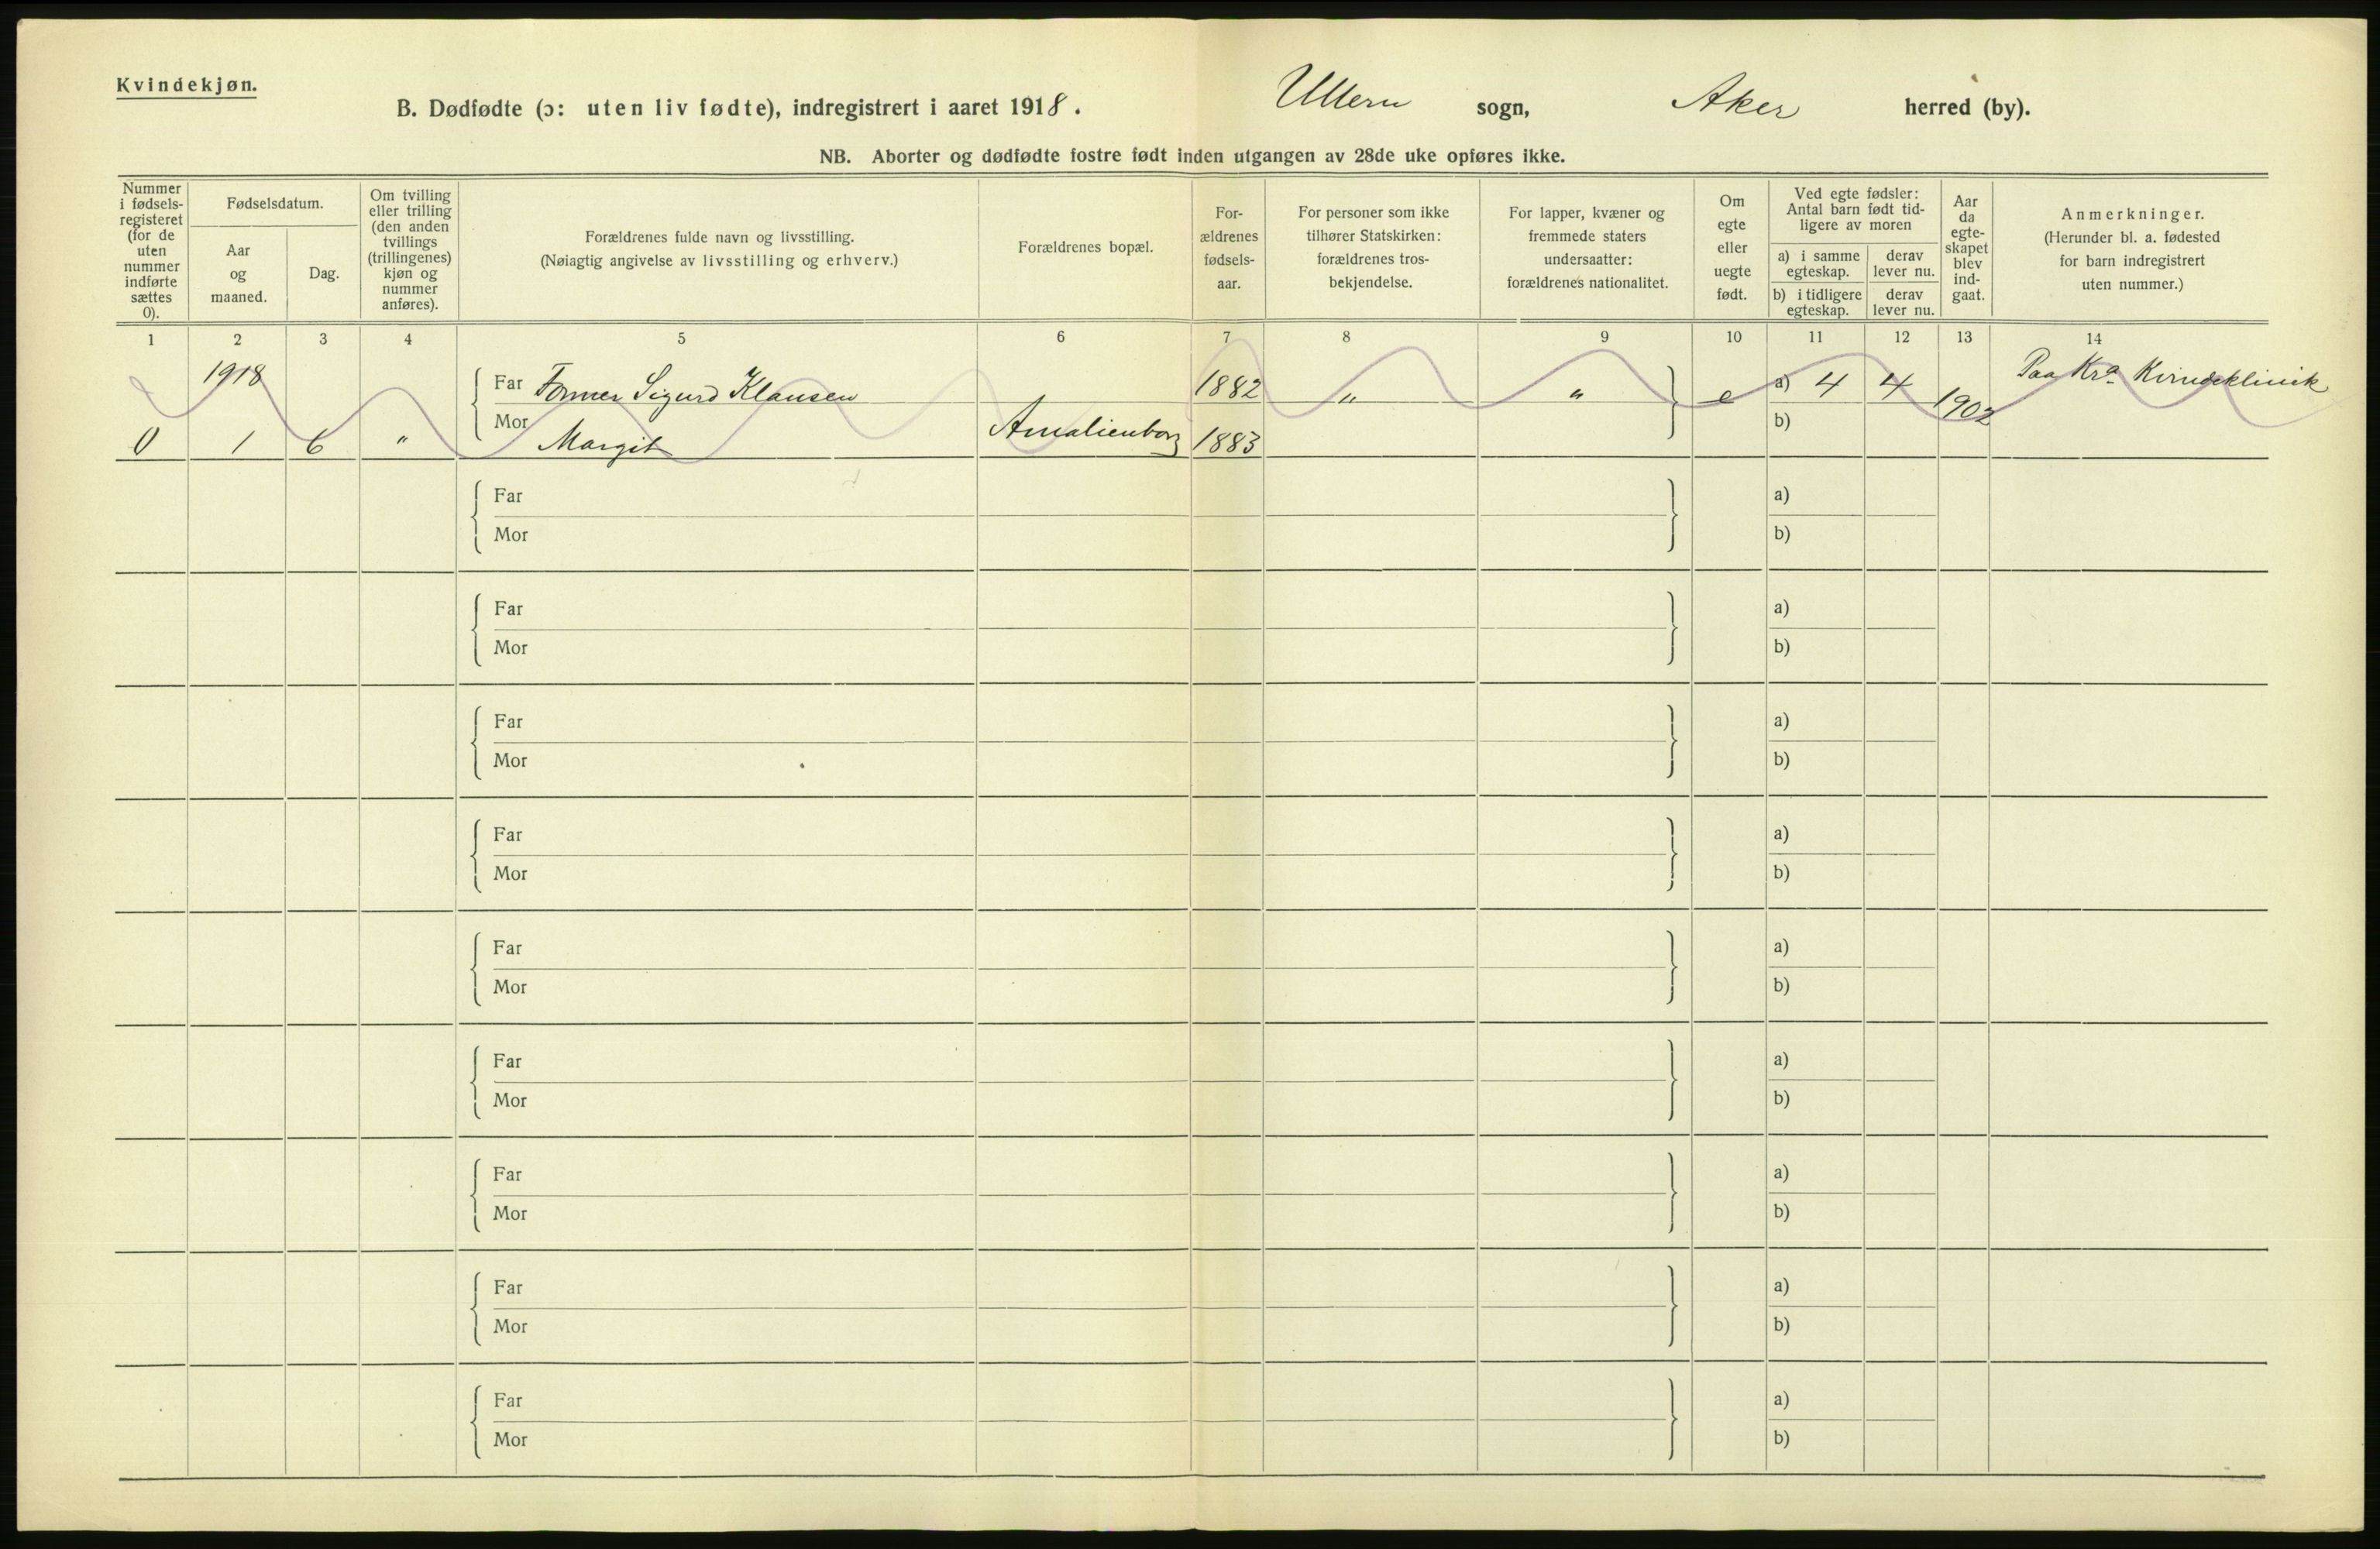 Kvindekjøn.
B. Dødfødte (ɔ: uten liv fødte), indregistrert i aaret 1918. Ullern sogn, Aker herred (by).
NB. Aborter og dødfødte fostre født inden utgangen av 28de uke opføres ikke.
Nummer i fødsels-registeret (for de uten nummer indførte sættes 0).
Fødselsdatum.
Aar og maaned.
Dag.
Om tvilling eller trilling (den anden tvillings (trillingenes) kjøn og nummer anføres).
Forældrenes fulde navn og livsstilling.
(Nøiagtig angivelse av livsstilling og erhverv.)
Forældrenes bopæl.
For-ældrenes fødsels-aar.
For personer som ikke tilhører Statskirken: forældrenes tros-bekjendelse.
For lapper, kvæner og fremmede staters undersaatter: forældrenes nationalitet.
Om egte eller uegte født.
Ved egte fødsler: Antal barn født tid-ligere av moren
a) i samme egteskap.
derav lever nu.
b) i tidligere egteskap.
derav lever nu.
Aar da egte-skapet blev ind-gaat.
Anmerkninger.
(Herunder bl. a. fødested for barn indregistrert uten nummer.)
1 2 3 4 5 6 7 8 9 10 11 12 13 14
1918 Far Sigurd Klausen 1882 " " e a) 4 4 1902 Paa Kra Kvindeklinik
0 1 6 " Mor Margit Amalienborg 1883 b)
Far a)
Mor b)
Far a)
Mor b)
Far a)
Mor b)
Far a)
Mor b)
Far a)
Mor b)
Far a)
Mor b)
Far a)
Mor b)
Far a)
Mor b)
Far a)
Mor b)